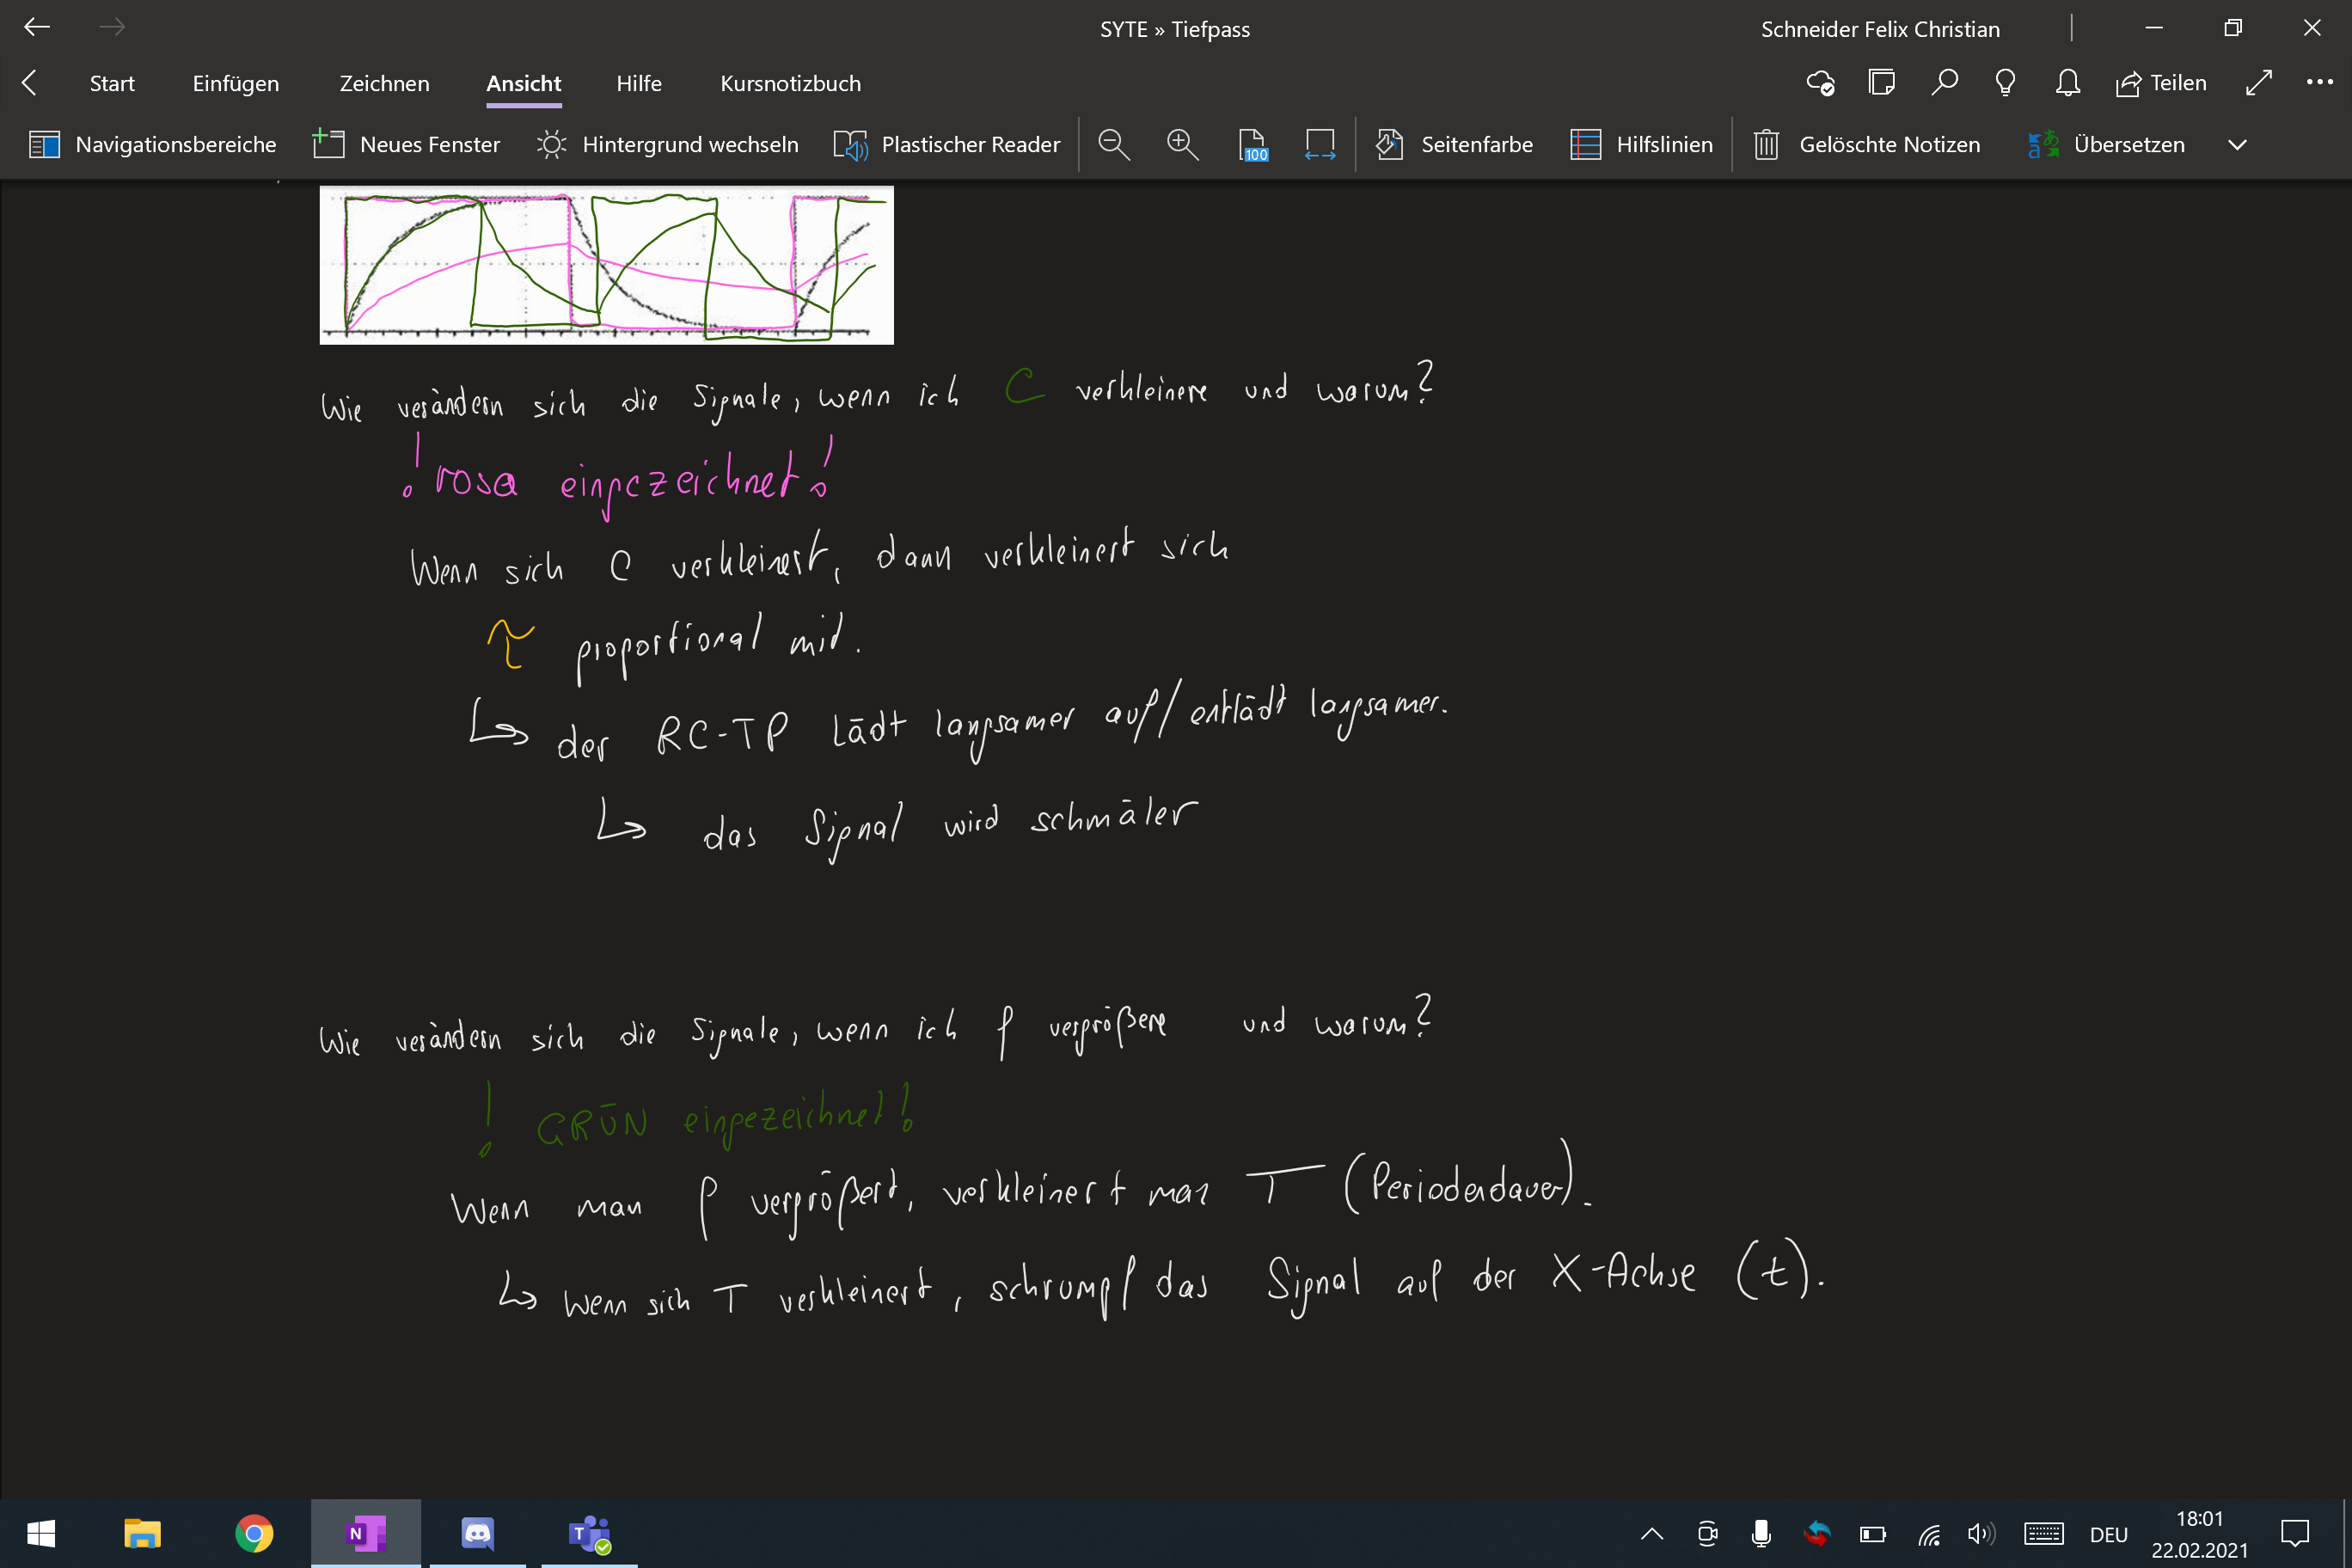 SYTE » Tiefpass
Schneider Felix Christian
Start Einfügen Zeichnen Ansicht Hilfe Kursnotizbuch
Teilen
Navigationsbereiche Neues Fenster Hintergrund wechseln Plastischer Reader 100 Seitenfarbe Hilfslinien Gelöschte Notizen Übersetzen
Wie verändern sich die Signale, wenn ich C verkleinere und warum?
! rosa eingezeichnet!
Wenn sich C verkleinert, dann verkleinert sich
τ proportional mit.
↳ der RC-TP lädt langsamer auf/entlädt langsamer.
↳ das Signal wird schmäler
Wie verändern sich die Signale, wenn ich f vergrößere und warum?
! GRÜN eingezeichnet!
Wenn man f vergrößert, verkleinert man T (Periodendauer).
↳ Wenn sich T verkleinert, schrumpf das Signal auf der X-Achse (t).
DEU
18:01
22.02.2021